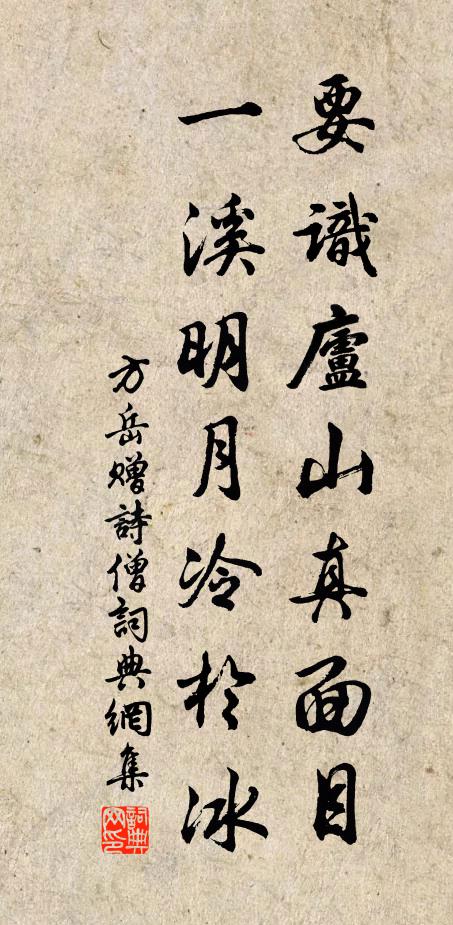 要識廬山真面目
一溪明月冷於冰
方岳贈詩僧詞典網集
詞典網印